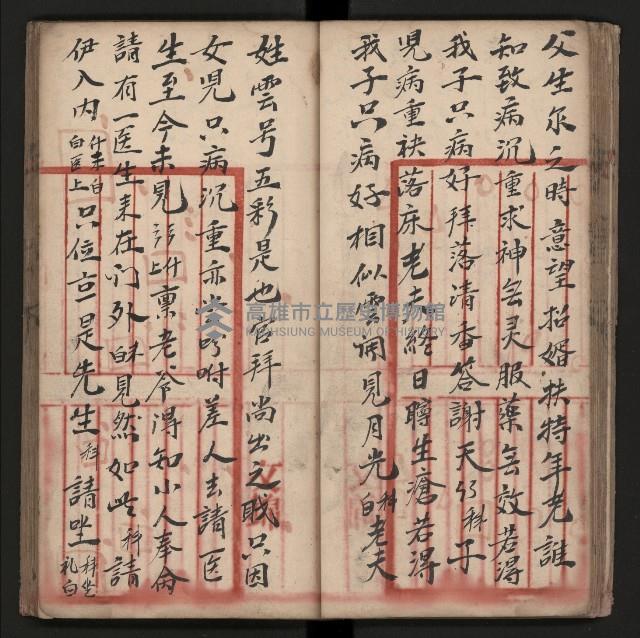 父生尔之時意望招婚扶特年老誰
知致病沉重求神無灵服藥無效若淂
我子只病好拜落清香答謝天 科 子
児病重袂落床老夫經日瞕生瘡若淂
我子只病好相似雲開見月光 科白 老夫
姓雲号五彩是也官拜尚出之戝只因
女児只病沉重亦 吩咐差人去請医
生至今未見 上什 稟老爷淂知小人奉侖
請有一医生来在门外 見然如此 科 請
伊入内 什来白 白医上 只位言是先生 科 請坐 科坐 礼白
高雄市立歷史博物館
KAOHSIUNG MUSEUM OF HISTORY